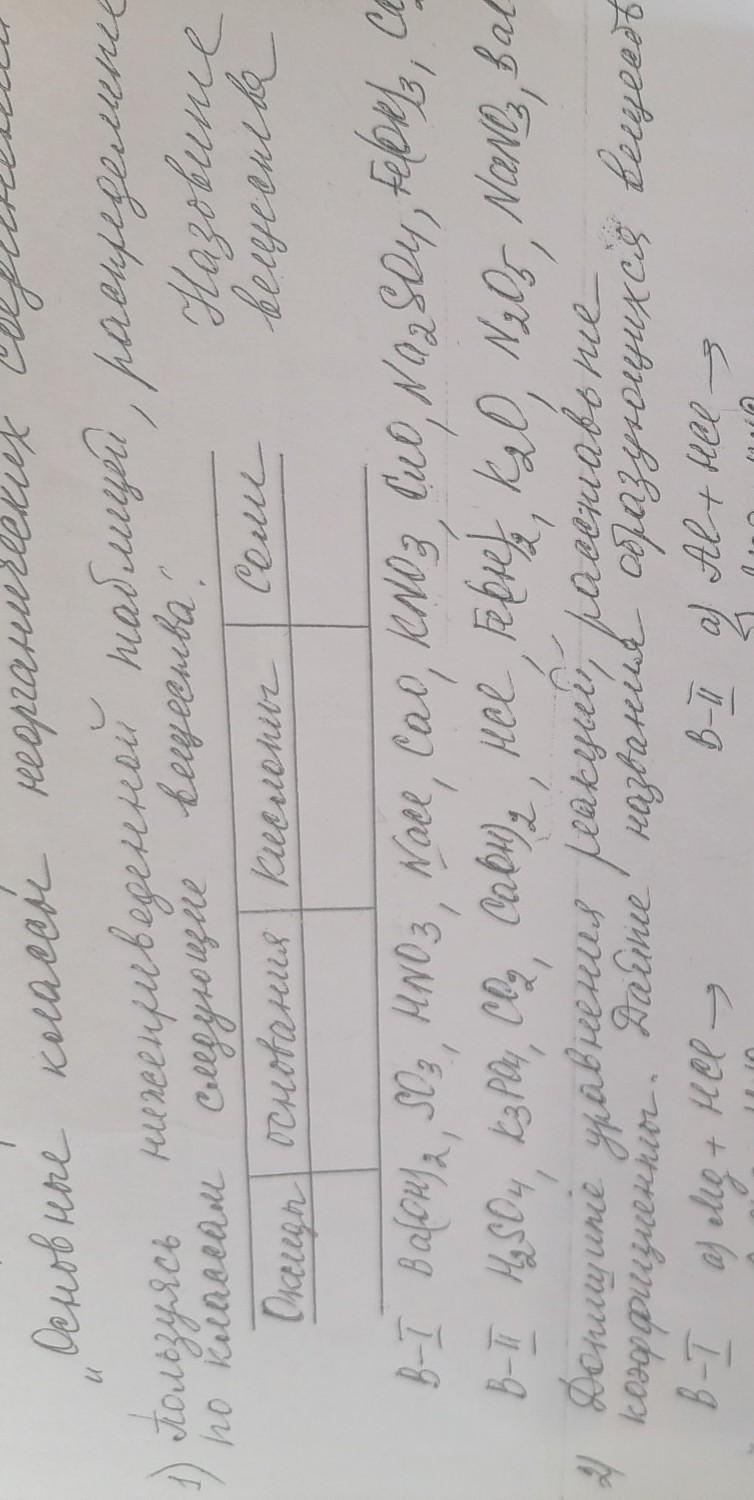 "Основные классы неорганических соединений
1) Пользуясь нижеприведенной таблицей, распределите
по классам следующие вещества: Назовите
вещества
Оксиды основания кислоты Соли
В-I Ba(OH)2, SO3, HNO3, NaCl, CaO, KNO3, CuO, Na2SO4, Fe(OH)3,
В-II H2SO4, K3PO4, CO2, Ca(OH)2, HCl, Fe(OH)2, K2O, N2O5, NaNO3,
2) Допишите уравнения реакций, расставьте
коэффициенты. Дайте названия образующихся веществ
В-I а) Mg + HCl → В-II а) Al + HCl →